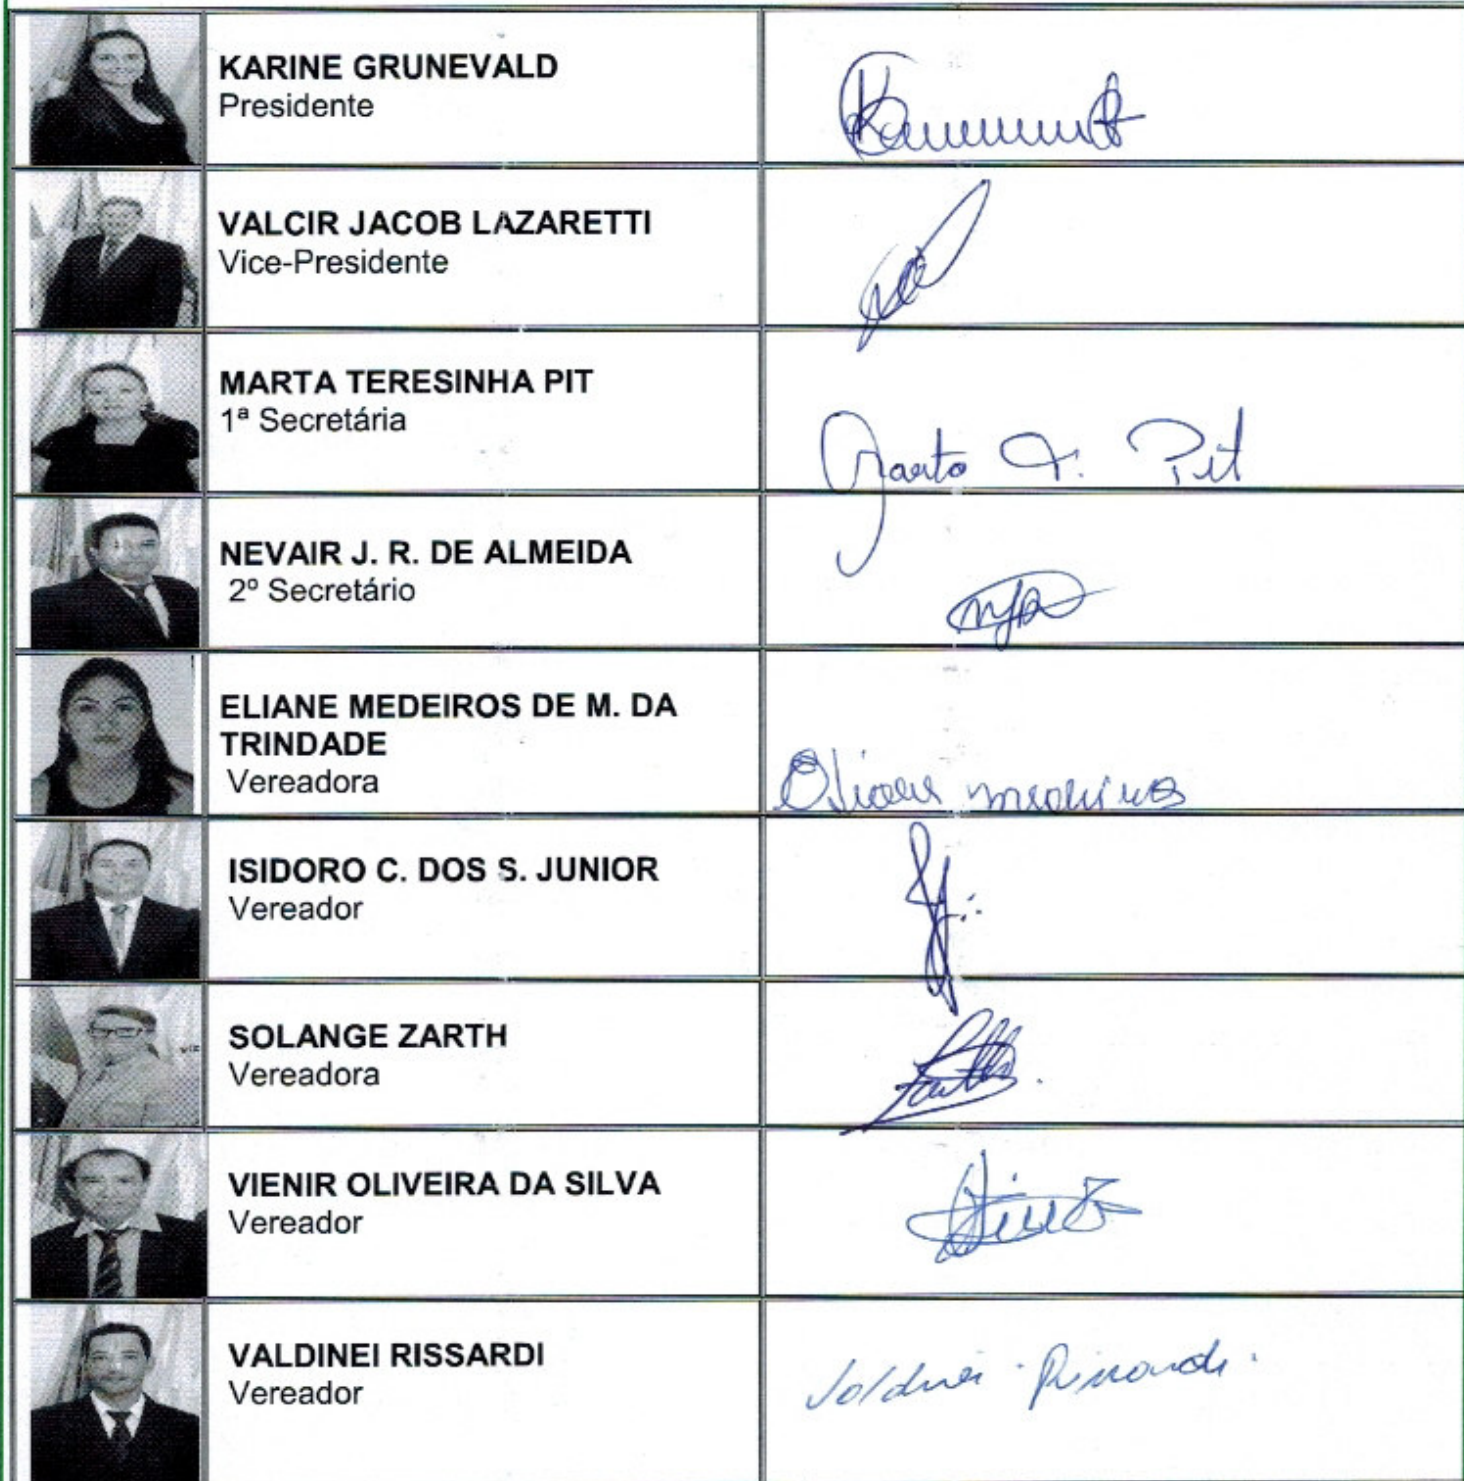 KARINE GRUNEVALD
Presidente
VALCIR JACOB LAZARETTI
Vice-Presidente
MARTA TERESINHA PIT
1ª Secretária
Marta T. Pit
NEVAIR J. R. DE ALMEIDA
2º Secretário
ELIANE MEDEIROS DE M. DA
TRINDADE
Vereadora
Eliane Medeiros
ISIDORO C. DOS S. JUNIOR
Vereador
SOLANGE ZARTH
Vereadora
VIENIR OLIVEIRA DA SILVA
Vereador
VALDINEI RISSARDI
Vereador
Valdinei Rissardi